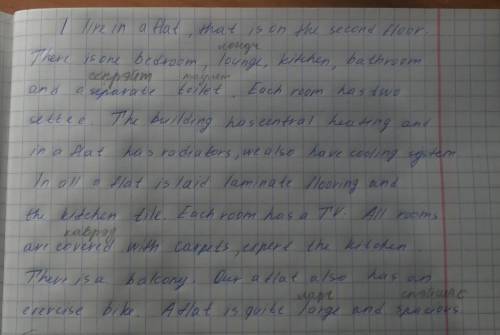 I live in a flat, that is on the second floor.
лоундч
There is one bedroom, lounge, kitchen, bathroom
сепрэйт тоилет
and a separate toilet. Each room has two
settee. The building has central heating and
in a flat has radiators, we also have cooling system
In all a flat is laid laminate flooring and
the kitchen tile. Each room has a TV. All rooms
каврэд
are covered with carpets, expert the kitchen.
There is a balcony. Our a flat also has an
ладч спэйшес
exercise bike. A flat is quite large and spacious